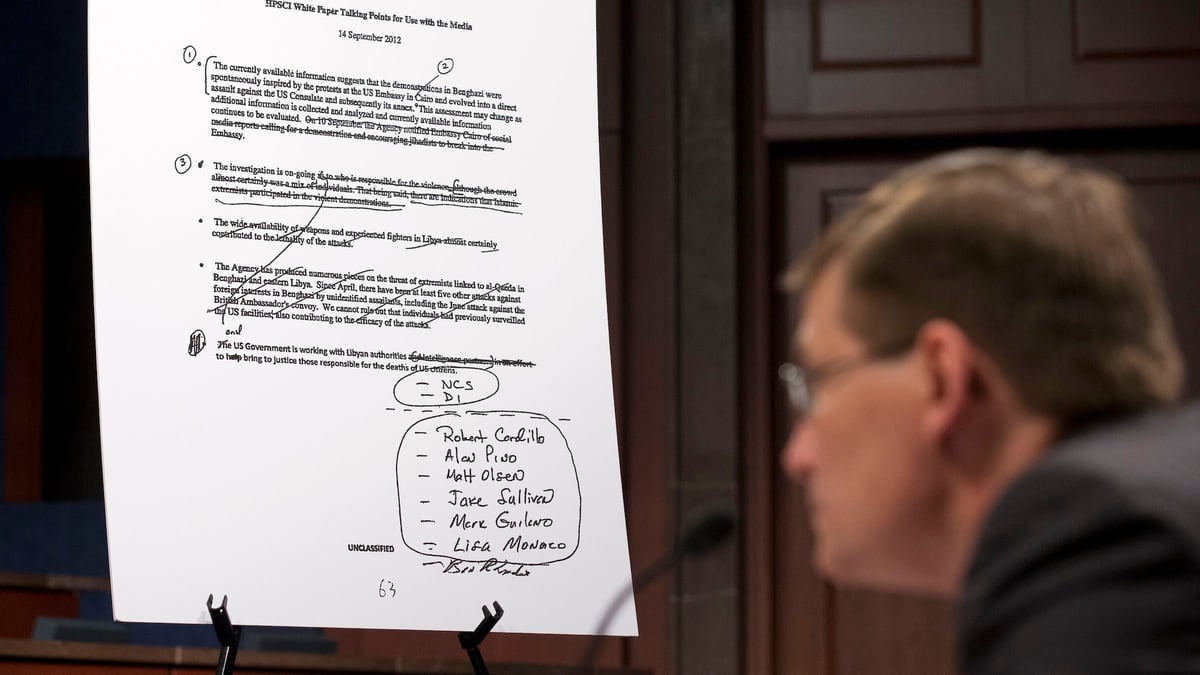 HPSCI White Paper Talking Points for Use with the Media
14 September 2012
1
2
The currently available information suggests that the demonstrations in Benghazi were
spontaneously inspired by the protests at the US Embassy in Cairo and evolved into a direct
assault against the US Consulate and subsequently its annex. This assessment may change as
additional information is collected and analyzed and currently available information
continues to be evaluated. On 10 September the Agency notified Embassy Cairo of social
media reports calling for a demonstration and encouraging jihadists to break into the
Embassy.
3
The investigation is on-going as to who is responsible for the violence, although the crowd
almost certainly was a mix of individuals. That being said, there are indications that Islamic
extremists participated in the violent demonstrations.
The wide availability of weapons and experienced fighters in Libya almost certainly
contributed to the lethality of the attacks.
The Agency has produced numerous pieces on the threat of extremists linked to al-Qaeda in
Benghazi and eastern Libya. Since April, there have been at least five other attacks against
foreign interests in Benghazi by unidentified assailants, including the June attack against the
British Ambassador's convoy. We cannot rule out that individuals had previously surveilled
the US facilities, also contributing to the efficacy of the attacks.
and
The US Government is working with Libyan authorities and intelligence in an effort
to help bring to justice those responsible for the deaths of US citizens.
— NCS
— DI
— Robert Cardillo
— Alan Pino
— Matt Olsen
— Jake Sullivan
— Mark Guiliano
— Lisa Monaco
— Ben
UNCLASSIFIED
63